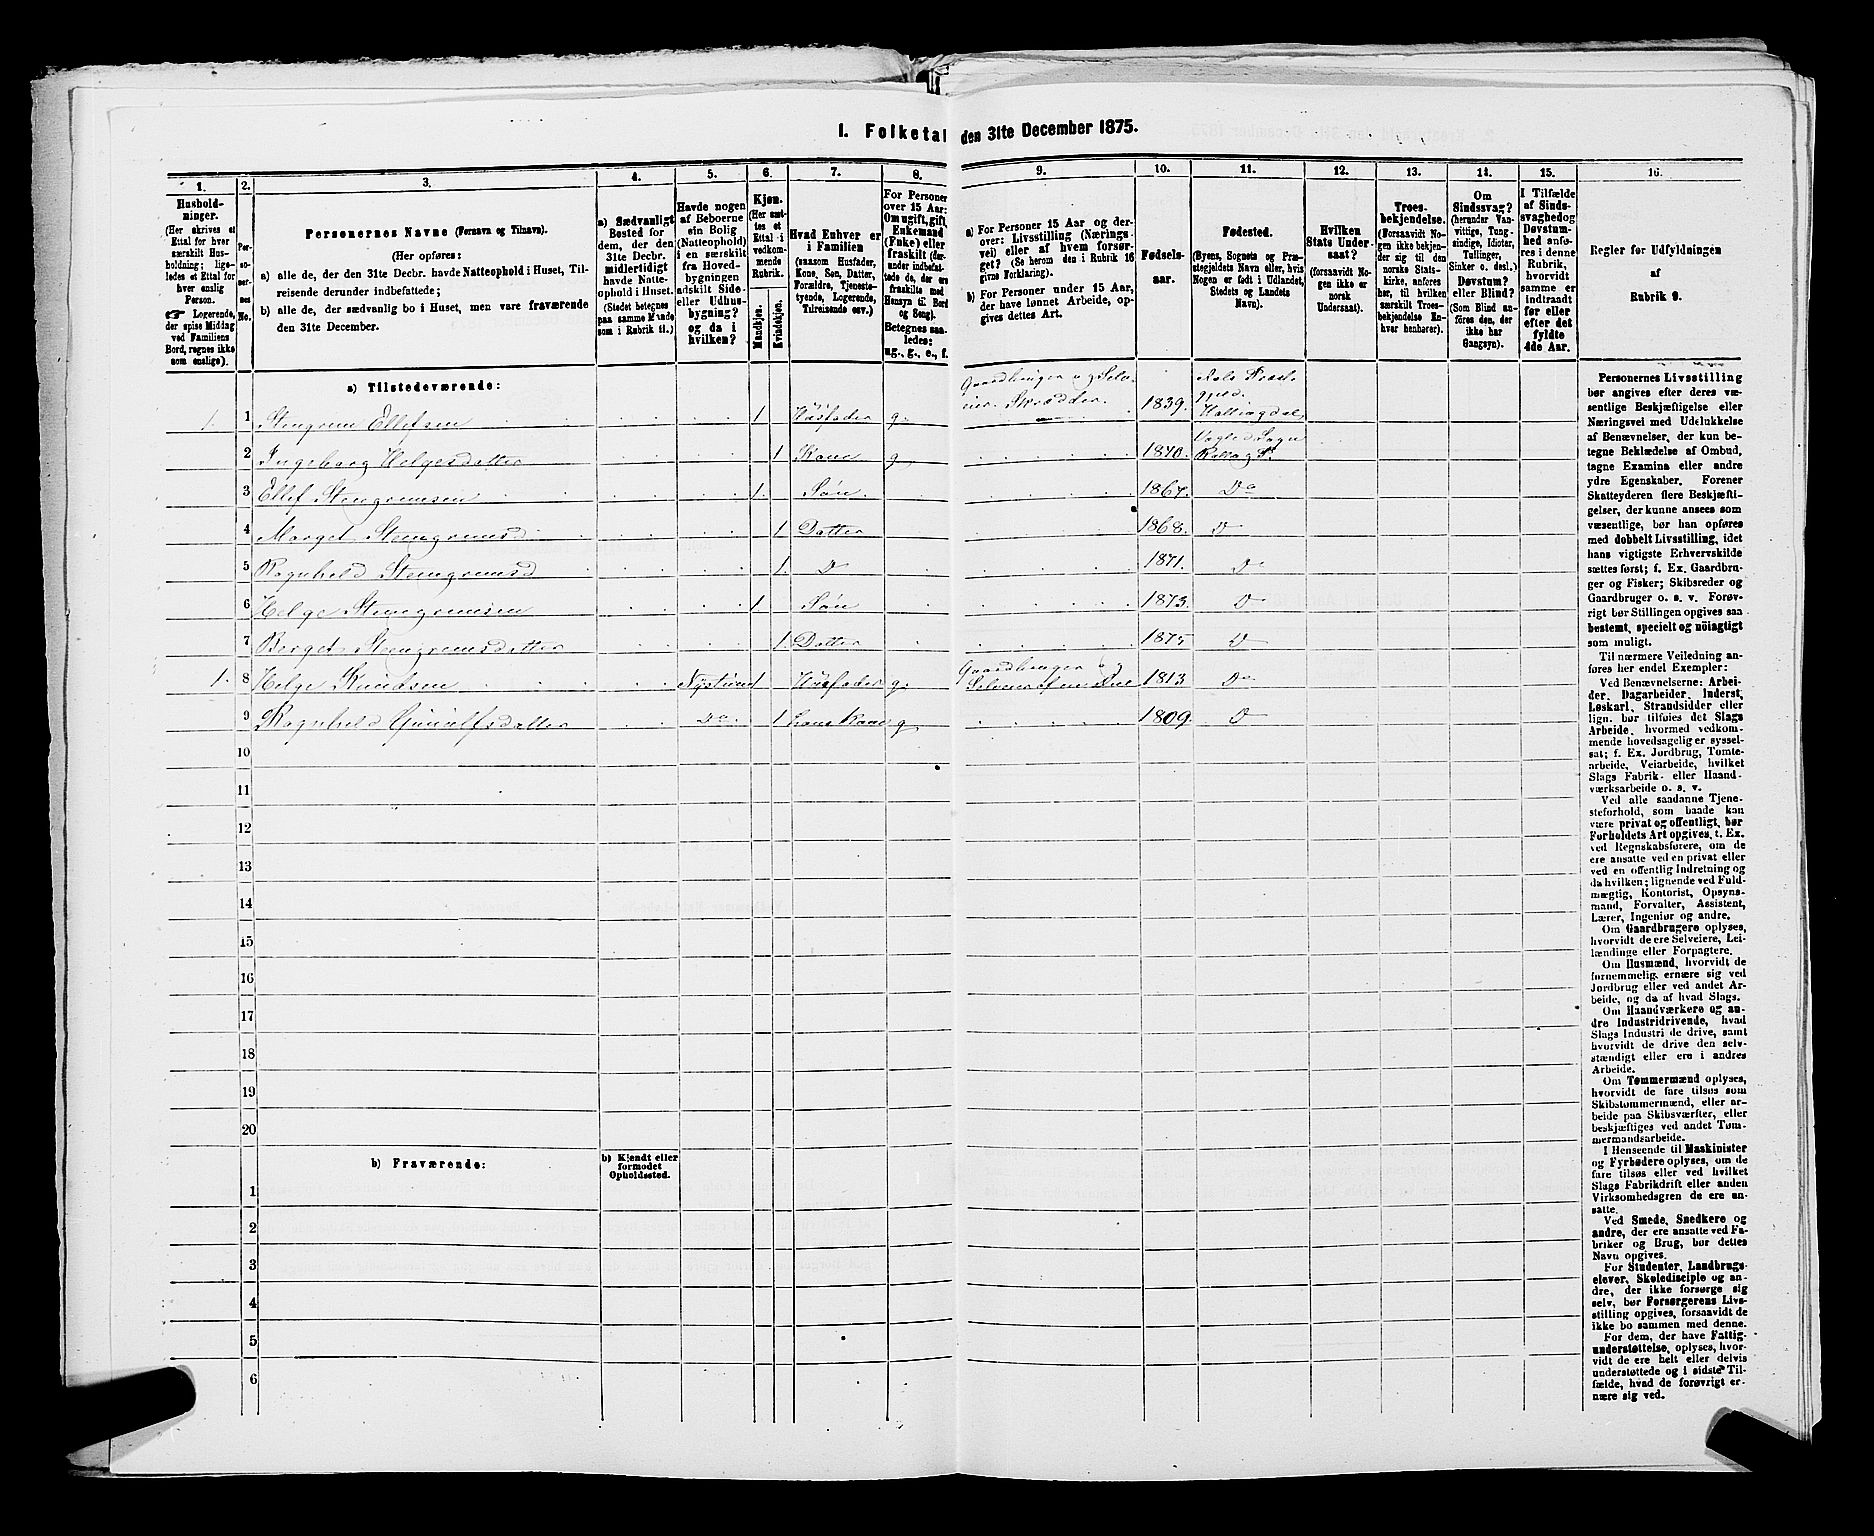 1. Folketal den 31te December 1875.
1.
Hushold-
ninger.
(Her skrives et
Ettal for hver
særskilt Hus-
holdning; lige-
ledes et Ettal for
hver enslig
Person.
☞ Logerende,
der spise Middag
ved Familiens
Bord, regnes ikke
som enslige).
2.
Per-
so-
ner-
nes
No.
3.
Personernes Navne (Fornavn og Tilnavn).
(Her opføres:
a) alle de, der den 31te Decbr. havde Natteophold i Huset, Til-
reisende derunder indbefattede;
b) alle de, der sædvanlig bo i Huset, men vare fraværende
den 31te December.
4.
a) Sædvanligt
Bosted for
dem, der den
31te Decbr.
midlertidigt
havde Natte-
ophold i Huset.
(Stedet betegnes
paa samme Maade
som i Rubrik 11.)
5.
Havde nogen
af Beboerne
sin Bolig
(Natteophold)
i en særskilt
fra Hoved-
bygningen
adskilt Side-
eller Udhus-
bygning?
og da i
hvilken?
6.
Kjøn.
(Her sæt-
tes et
Ettal i
vedkom-
mende
Rubrik.
Mandkjøn.
Kvindekjøn.
7.
Hvad Enhver er
i Familien
(saasom Husfader,
Kone, Søn, Datter,
Forældre, Tjeneste-
tyende, Logerende,
Tilreisende osv.)
8.
For Personer
over 15 Aar:
Om ugift, gift,
Enkemand
(Enke) eller
fraskilt (der-
under indbefat-
tede de, der ere
fraskilte med
Hensyn til Bord
og Seng).
Betegnes saa-
ledes:
ug., g., e., f.
9.
a) For Personer 15 Aar og der-
over: Livsstilling (Nærings-
vei) eller af hvem forsør-
get? (Se herom den i Rubrik 16
givne Forklaring).
b) For Personer under 15 Aar,
der have lønnet Arbeide, op-
gives dettes Art.
10.
Fødsels-
aar.
11.
Fødested.
(Byens, Sognets og Præ-
stegjeldets Navn eller, hvis
Nogen er født i Udlandet,
Stedets og Landets
Navn).
12.
Hvilken
Stats Under-
saat?
(forsaavidt No-
gen ikke er
norsk
Undersaat).
13.
Troes-
bekjendelse.
(Forsaavidt No-
gen ikke bekjen-
der sig til den
norske Stats-
kirke, anføres
her, til hvilken
særskilt Troes-
bekjendelse En-
hver henhører).
14.
Om
Sindssvag?
(herunder Van-
vittige, Tung-
sindige, Idioter,
Tullinger,
Sinker o. desl.)
Døvstum?
eller Blind?
(Som Blind an-
føres den, der
ikke har
Gangsyn).
15.
I Tilfælde
af Sinds-
svaghed og
Døvstum-
hed anfø-
res i denne
Rubrik,
hvorvidt
samme er
indtraadt
før eller
efter det
fyldte
4de Aar.
16.
Regler før Udfyldningen
af
Rubrik 9.
a) Tilstedeværende:
Gaardbruger og Selv-
eier. Skrædder.
1. 1 Stengrim Ellefsen 1 Husfader g. 1839. Aals Præste
gjeld.
Hallingdal
2 Ingeborg Helgesdatter 1 Kone g 1840. Vegle Sogn
Rollag P.
3 Ellef Stengrimsen 1. Søn. 1867. Do
4 Marget Stengrimsd 1 Datter 1868. D
5 Ragnhild Stengrimsd 1. D 1871. D
6 Helge Stengrimsen 1 Søn 1873. D
7 Berget Stengrimsdatter 1. Datter 1875 D
1. 8 Helge Knudsen 1 Husfader g. Gaardbruger og
Selveier 1813 Do
9 Ragnhild Gunulfsdatter Do. 1 hans Kone g 1809. D
10
11
12
13
14
15
16
17
18
19
20
b) Fraværende:
b) Kjendt eller
formodet
Opholdssted.
1
2
3
4
5
6
Personernes Livsstilling
bør angives efter deres væ-
sentlige Beskjæftigelse eller
Næringsvei med Udelukkelse
af Benævnelser, der kun be-
tegne Beklædelse af Ombud,
tagne Examina eller andre
ydre Egenskaber. Forener
Skatteyderen flere Beskjæfti-
gelser, der kunne ansees som
væsentlige, bør han opføres
med dobbelt Livsstilling, idet
hans vigtigste Erhvervskilde
sættes først; f. Ex. Gaardbru-
ger og Fisker; Skibsreder og
Gaardbruger o. s. v. Forøv-
rigt bør Stillingen opgives saa
bestemt, specielt og nøiagtigt
som muligt.
Til nærmere Veiledning an-
føres her endel Exempler:
Ved Benævnelserne: Arbei-
der, Dagarbeider, Inderst,
Løskarl, Strandsidder eller
lign. bør tilføies det Slags
Arbeide, hvormed vedkom-
mende hovedsagelig er syssel-
sat; f. Ex. Jordbrug, Tomte-
arbeide, Veiarbeide, hvilket
Slags Fabrik- eller Haand-
værksarbeide o. s. v.
Ved alle saadanne Tjene-
steforhold, som baade kan
være privat og offentligt, bør
Forholdets Art opgives, t. Ex.
ved Regnskabsførere, om de
ere ansatte ved en privat eller
ved en offentlig Indretning og
da hvilken; lignende ved Fuld-
mægtig, Kontorist, Opsyns-
mand, Forvalter, Assistent,
Lærer, Ingeniør og andre.
Om Gaardbrugere oplyses,
hvorvidt de ere Selveiere, Lei-
lændinge eller Forpagtere.
Om Husmænd, hvorvidt de
fornemmelig ernære sig ved
Jordbrug eller ved andet Ar-
beide, og da af hvad Slags.
Om Haandværkere og an-
dre Industridrivende, hvad
Slags Industri de drive, samt
hvorvidt de drive den selv-
stændigt eller ere i andres
Arbeide.
Om Tømmermænd oplyses,
hvorvidt de fare tilsøs som
Skibstømmermænd, eller ar-
beide paa Skibsværfter, eller
beskjæftiges ved andet Tøm-
mermandsarbeide.
I Henseende til Maskinister
og Fyrbødere oplyses, om de
fare tilsøs eller ved hvilket
Slags Fabrikdrift eller anden
Virksomhedsgren de ere an-
satte.
Ved Smede, Snedkere og
andre, der ere ansatte ved Fa-
briker og Brug, bør dettes
Navn opgives.
For Studenter, Landbrugs-
elever, Skoledisciple og an-
dre, der ikke forsørge sig
selv, bør Forsørgerens Livs-
stilling opgives, forsaavidt de
ikke bo sammen med denne.
For dem, der have Fattig-
understøttelse, oplyses, hvor-
vidt de ere helt eller delvis
understøttede og i sidste Til-
fælde, hvad de forøvrigt er-
nære sig ved.